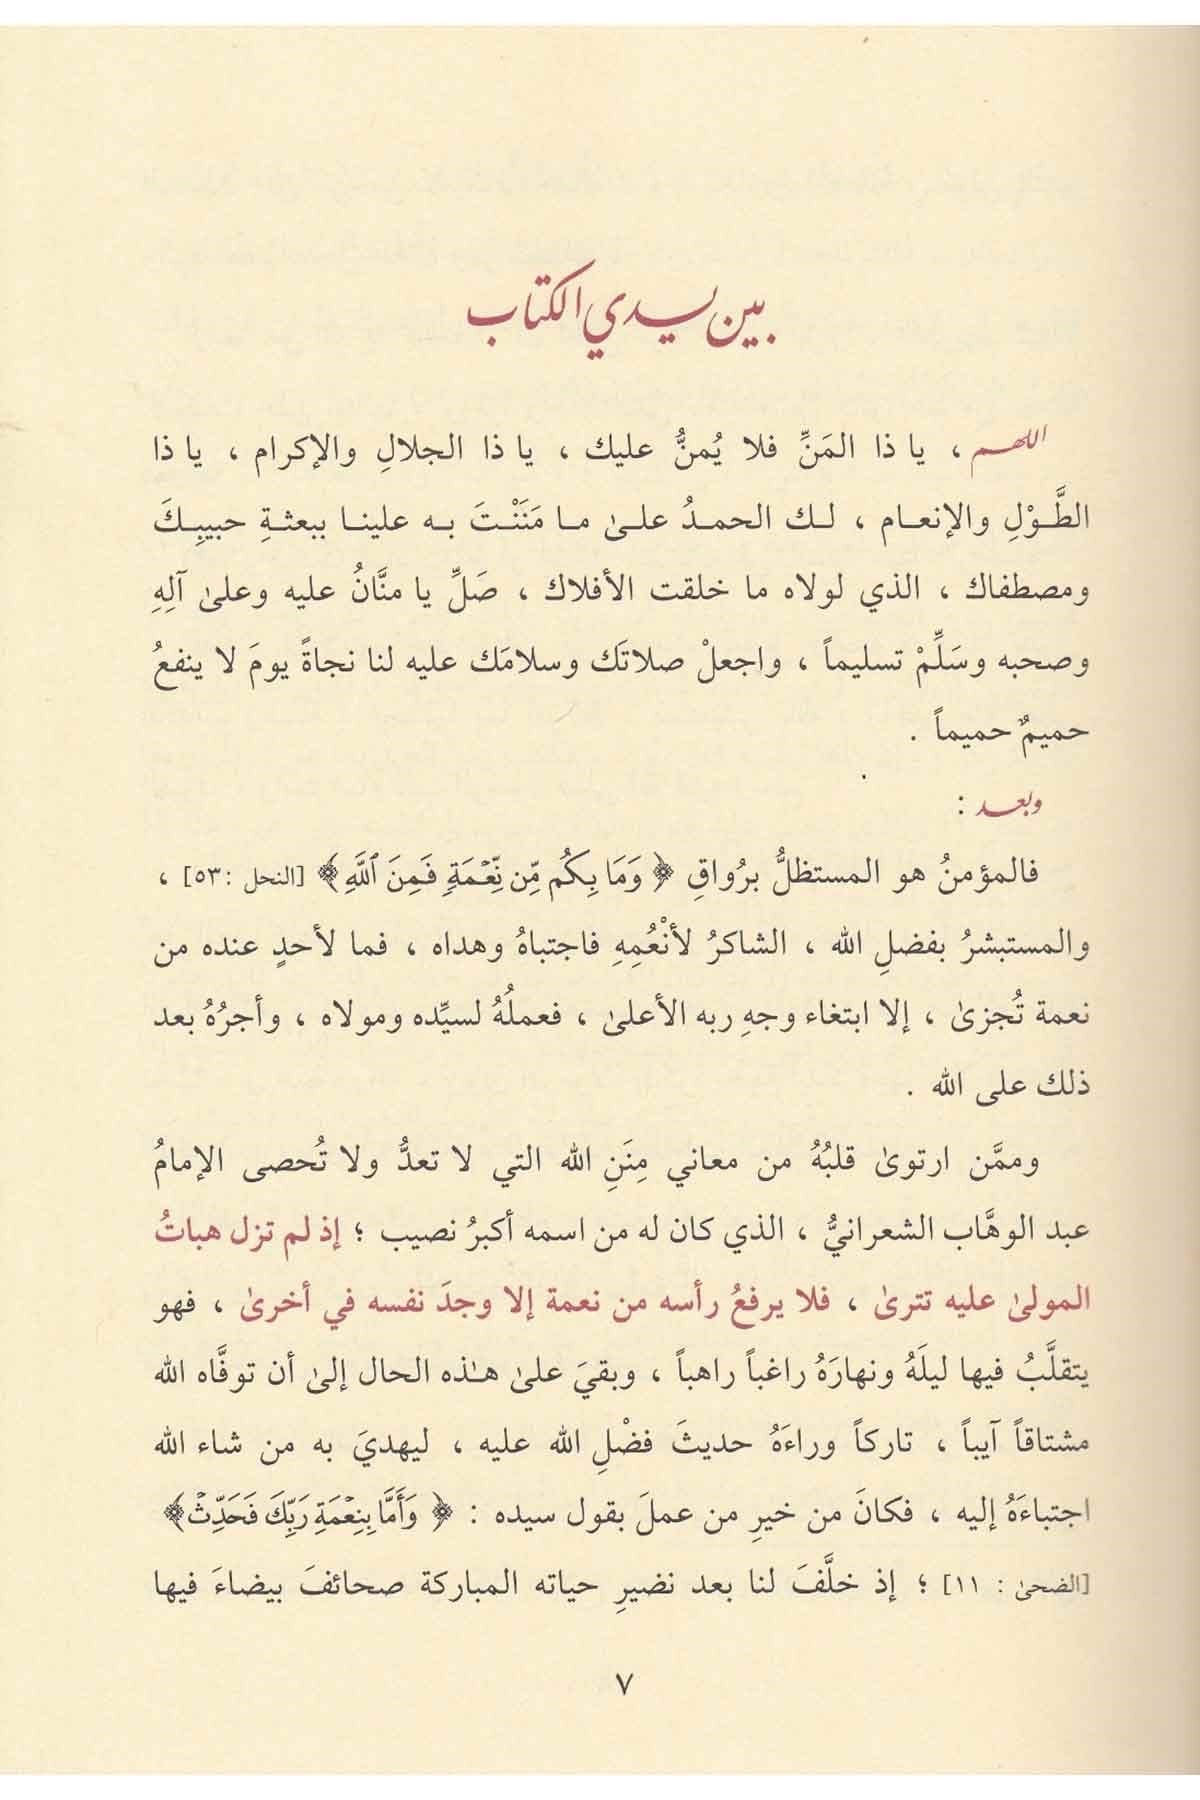 بين يدي الكتاب
اللهم ، يا ذا المَنِّ فلا يُمنُّ عليك ، يا ذا الجلالِ والإكرام ، يا ذا
الطَّوْلِ والإنعام ، لك الحمدُ علىٰ ما مَنَنْتَ به علينا ببعثةِ حبيبِكَ
ومصطفاك ، الذي لولاه ما خلقت الأفلاك ، صَلِّ يا منَّانُ عليه وعلىٰ آلِهِ
وصحبه وسَلِّمْ تسليماً ، واجعلْ صلاتَك وسلامَك عليه لنا نجاةً يومَ لا ينفعُ
حميمٌ حميماً .
وبعد :
فالمؤمنُ هو المستظلُّ برُواقِ ﴿ وَمَا بِكُم مِّن نِّعْمَةٍ فَمِنَ ٱللَّهِ﴾ [النحل : ٥٣] ،
والمستبشرُ بفضلِ الله ، الشاكرُ لأنْعُمِهِ فاجتباهُ وهداه ، فما لأحدٍ عنده من
نعمة تُجزىٰ ، إلا ابتغاء وجهِ ربه الأعلىٰ ، فعملُهُ لسيِّده ومولاه ، وأجرُهُ بعد
ذلك على الله .
وممَّن ارتوىٰ قلبُهُ من معاني مِنَنِ الله التي لا تعدُّ ولا تُحصى الإمامُ
عبد الوهَّاب الشعرانيُّ ، الذي كان له من اسمه أكبرُ نصيب ؛ إذ لم تزل هباتُ
المولىٰ عليه تترىٰ ، فلا يرفعُ رأسه من نعمة إلا وجدَ نفسه في أخرىٰ ، فهو
يتقلَّبُ فيها ليلَهُ ونهارَهُ راغباً راهباً ، وبقيَ علىٰ هـٰذه الحال إلىٰ أن توفَّاه الله
مشتاقاً آيباً ، تاركاً وراءَهُ حديثَ فضْلِ الله عليه ، ليهديَ به من شاء الله
اجتباءَهُ إليه ، فكانَ من خيرِ من عملَ بقول سيده : ﴿ وَأَمَّا بِنِعْمَةِ رَبِّكَ فَحَدِّثْ﴾
[الضحىٰ : ١١] ؛ إذ خلَّفَ لنا بعد نضيرِ حياته المباركة صحائفَ بيضاءَ فيها
٧